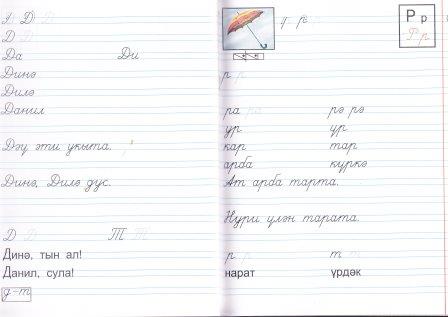 Д Д Д
Д Д
Да Ди
Динә
Дилә
Данил
Дәү әти укыта.
Динә, Дилә дус.
Д Д Т Т
Динә, тын ал!
Данил, сула!
д-т
р р
Р р
Р р
р р
ра ра рә рә
ур үр
кар тар
арба күркә
Ат арба тарта.
Нури үлән тарата.
р р т т
нарат үрдәк